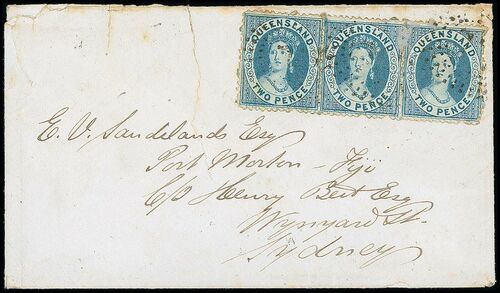 QUEENSLAND QUEENSLAND QUEENSLAND
TWO PENCE TWO PENCE TWO PENCE
E. V. Sandilands Esq
Port Morton - Fiji
C/o Henry Beit Esq
Wynyard St.
Sydney